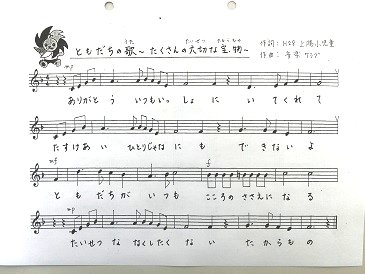 ともだちの歌～たくさんの大切な宝物～
うた
たいせつ
たからもの
作詞：H29 上陽小児童
作曲：音楽クラブ
mp
ありがとう いつもいっしょ に いてくれて
たすけあい ひとりじゃなにも できないよ
mf
f
ともだちが いつも こころの ささえになる
mp
たいせつな なくしたくない たからもの